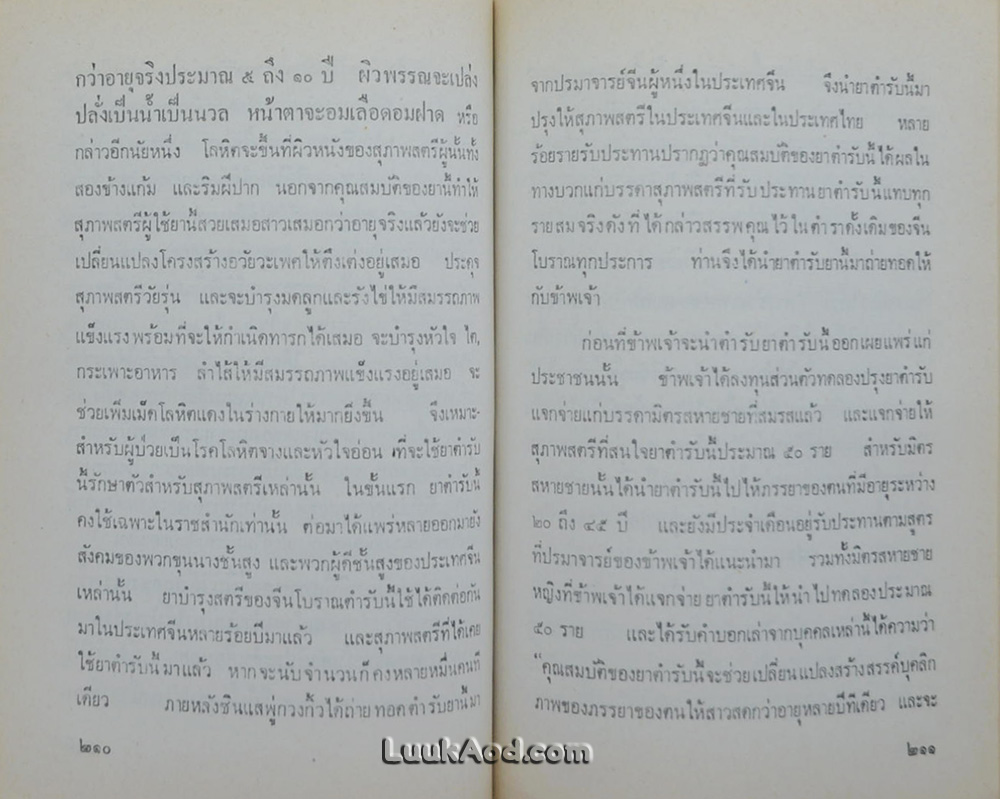 กว่าอายุจริงประมาณ ๕ ถึง ๑๐ ปี ผิวพรรณจะเปล่ง
ปลั่งเป็นน้ำเป็นนวล หน้าตาจะอมเลือดอมฝาด หรือ
กล่าวอีกนัยหนึ่ง โลหิตจะขึ้นที่ผิวหนังของสุภาพสตรีผู้นั้นทั้ง
สองข้างแก้ม และริมฝีปาก นอกจากคุณสมบัติของยานี้ทำให้
สุภาพสตรีผู้ใช้ยานี้สวยเสมอสาวเสมอกว่าอายุจริงแล้วยังจะช่วย
เปลี่ยนแปลงโครงสร้างอวัยวะเพศให้ตึงเต่งอยู่เสมอ ประดุจ
สุภาพสตรีวัยรุ่น และจะบำรุงมดลูกและรังไข่ให้มีสมรรถภาพ
แข็งแรงพร้อมที่จะให้กำเนิดทารกได้เสมอ จะบำรุงหัวใจ ไต,
กระเพาะอาหาร ลำไส้ให้มีสมรรถภาพแข็งแรงอยู่เสมอ จะ
ช่วยเพิ่มเม็ดโลหิตแดงในร่างกายให้มากยิ่งขึ้น จึงเหมาะ-
สำหรับผู้ป่วยเป็นโรคโลหิตจางและหัวใจอ่อน ที่จะใช้ยาตำรับ
นี้รักษาตัวสำหรับสุภาพสตรีเหล่านั้น ในขั้นแรก ยาตำรับนี้
คงใช้เฉพาะในราชสำนักเท่านั้น ต่อมาได้แพร่หลายออกมายัง
สังคมของพวกขุนนางชั้นสูง และพวกผู้ดีชั้นสูงของประเทศจีน
เหล่านั้น ยาบำรุงสตรีของจีนโบราณตำรับนี้ใช้ได้ติดต่อกัน
มาในประเทศจีนหลายร้อยปีมาแล้ว และสุภาพสตรีที่ได้เคย
ใช้ยาตำรับนี้มาแล้ว หากจะนับจำนวนก็คงหลายหมื่นคนที
เดียว ภายหลังซินแสพู่กวงกิ้วได้ถ่ายทอดตำรับยานี้มา
๒๑๐
จากปรมาจารย์จีนผู้หนึ่งในประเทศจีน จึงนำยาตำรับนี้มา
ปรุงให้สุภาพสตรีในประเทศจีนและในประเทศไทย หลาย
ร้อยรายรับประทานปรากฏว่าคุณสมบัติของยาตำรับนี้ได้ผลใน
ทางบวกแก่บรรดาสุภาพสตรีที่รับประทานยาตำรับนี้แทบทุก
รายสมจริงดังที่ได้กล่าวสรรพคุณไว้ในตำราดั้งเดิมของจีน
โบราณทุกประการ ท่านจึงได้นำยาตำรับยานี้มาถ่ายทอดให้
กับข้าพเจ้า
ก่อนที่ข้าพเจ้าจะนำตำรับยาตำรับนี้ออกเผยแพร่แก่
ประชาชนนั้น ข้าพเจ้าได้ลงทุนส่วนตัวทดลองปรุงยาตำรับ
แจกจ่ายแก่บรรดามิตรสหายชายที่สมรสแล้ว และแจกจ่ายให้
สุภาพสตรีที่สนใจยาตำรับนี้ประมาณ ๕๐ ราย สำหรับมิตร
สหายชายนั้นได้นำยาตำรับนี้ไปให้ภรรยาของตนที่มีอายุระหว่าง
๒๐ ถึง ๔๕ ปี และยังมีประจำเดือนอยู่รับประทานตามสูตร
ที่ปรมาจารย์ของข้าพเจ้าได้แนะนำมา รวมทั้งมิตรสหายชาย
หญิงที่ข้าพเจ้าได้แจกจ่ายยาตำรับนี้ให้นำไปทดลองประมาณ
๕๐ ราย และได้รับคำบอกเล่าจากบุคคลเหล่านี้ได้ความว่า
“คุณสมบัติของยาตำรับนี้จะช่วยเปลี่ยนแปลงสร้างสรรค์บุคลิก
ภาพของภรรยาของตนให้สาวสดกว่าอายุหลายปีทีเดียว และจะ
๒๑๑
LuukAod.com